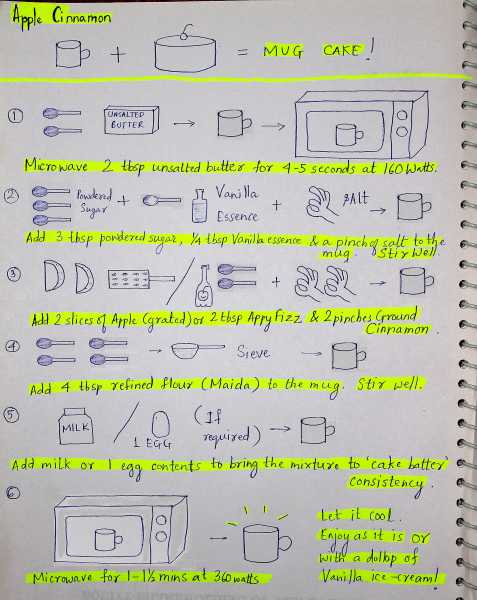 Apple Cinnamon
+ = MUG CAKE!
①
UNSALTED
BUTTER
Microwave 2 tbsp unsalted butter for 4-5 seconds at 160 Watts.
②
Powdered
Sugar + Vanilla
Essence + SAlt
Add 3 tbsp powdered sugar, 1/4 tbsp Vanilla essence & a pinch of salt to the
mug. Stir Well.
③
/ +
Add 2 slices of Apple (grated) or 2 tbsp Appy Fizz & 2 pinches Ground
Cinnamon.
④
Sieve
Add 4 tbsp refined flour (Maida) to the mug. Stir well.
⑤
MILK / 1 EGG (If
required)
Add milk or 1 egg contents to bring the mixture to 'cake batter'
consistency.
⑥
Let it cool.
Enjoy as it is or
with a dollop of
Vanilla ice-cream!
Microwave for 1-1½ mins at 360 watts.